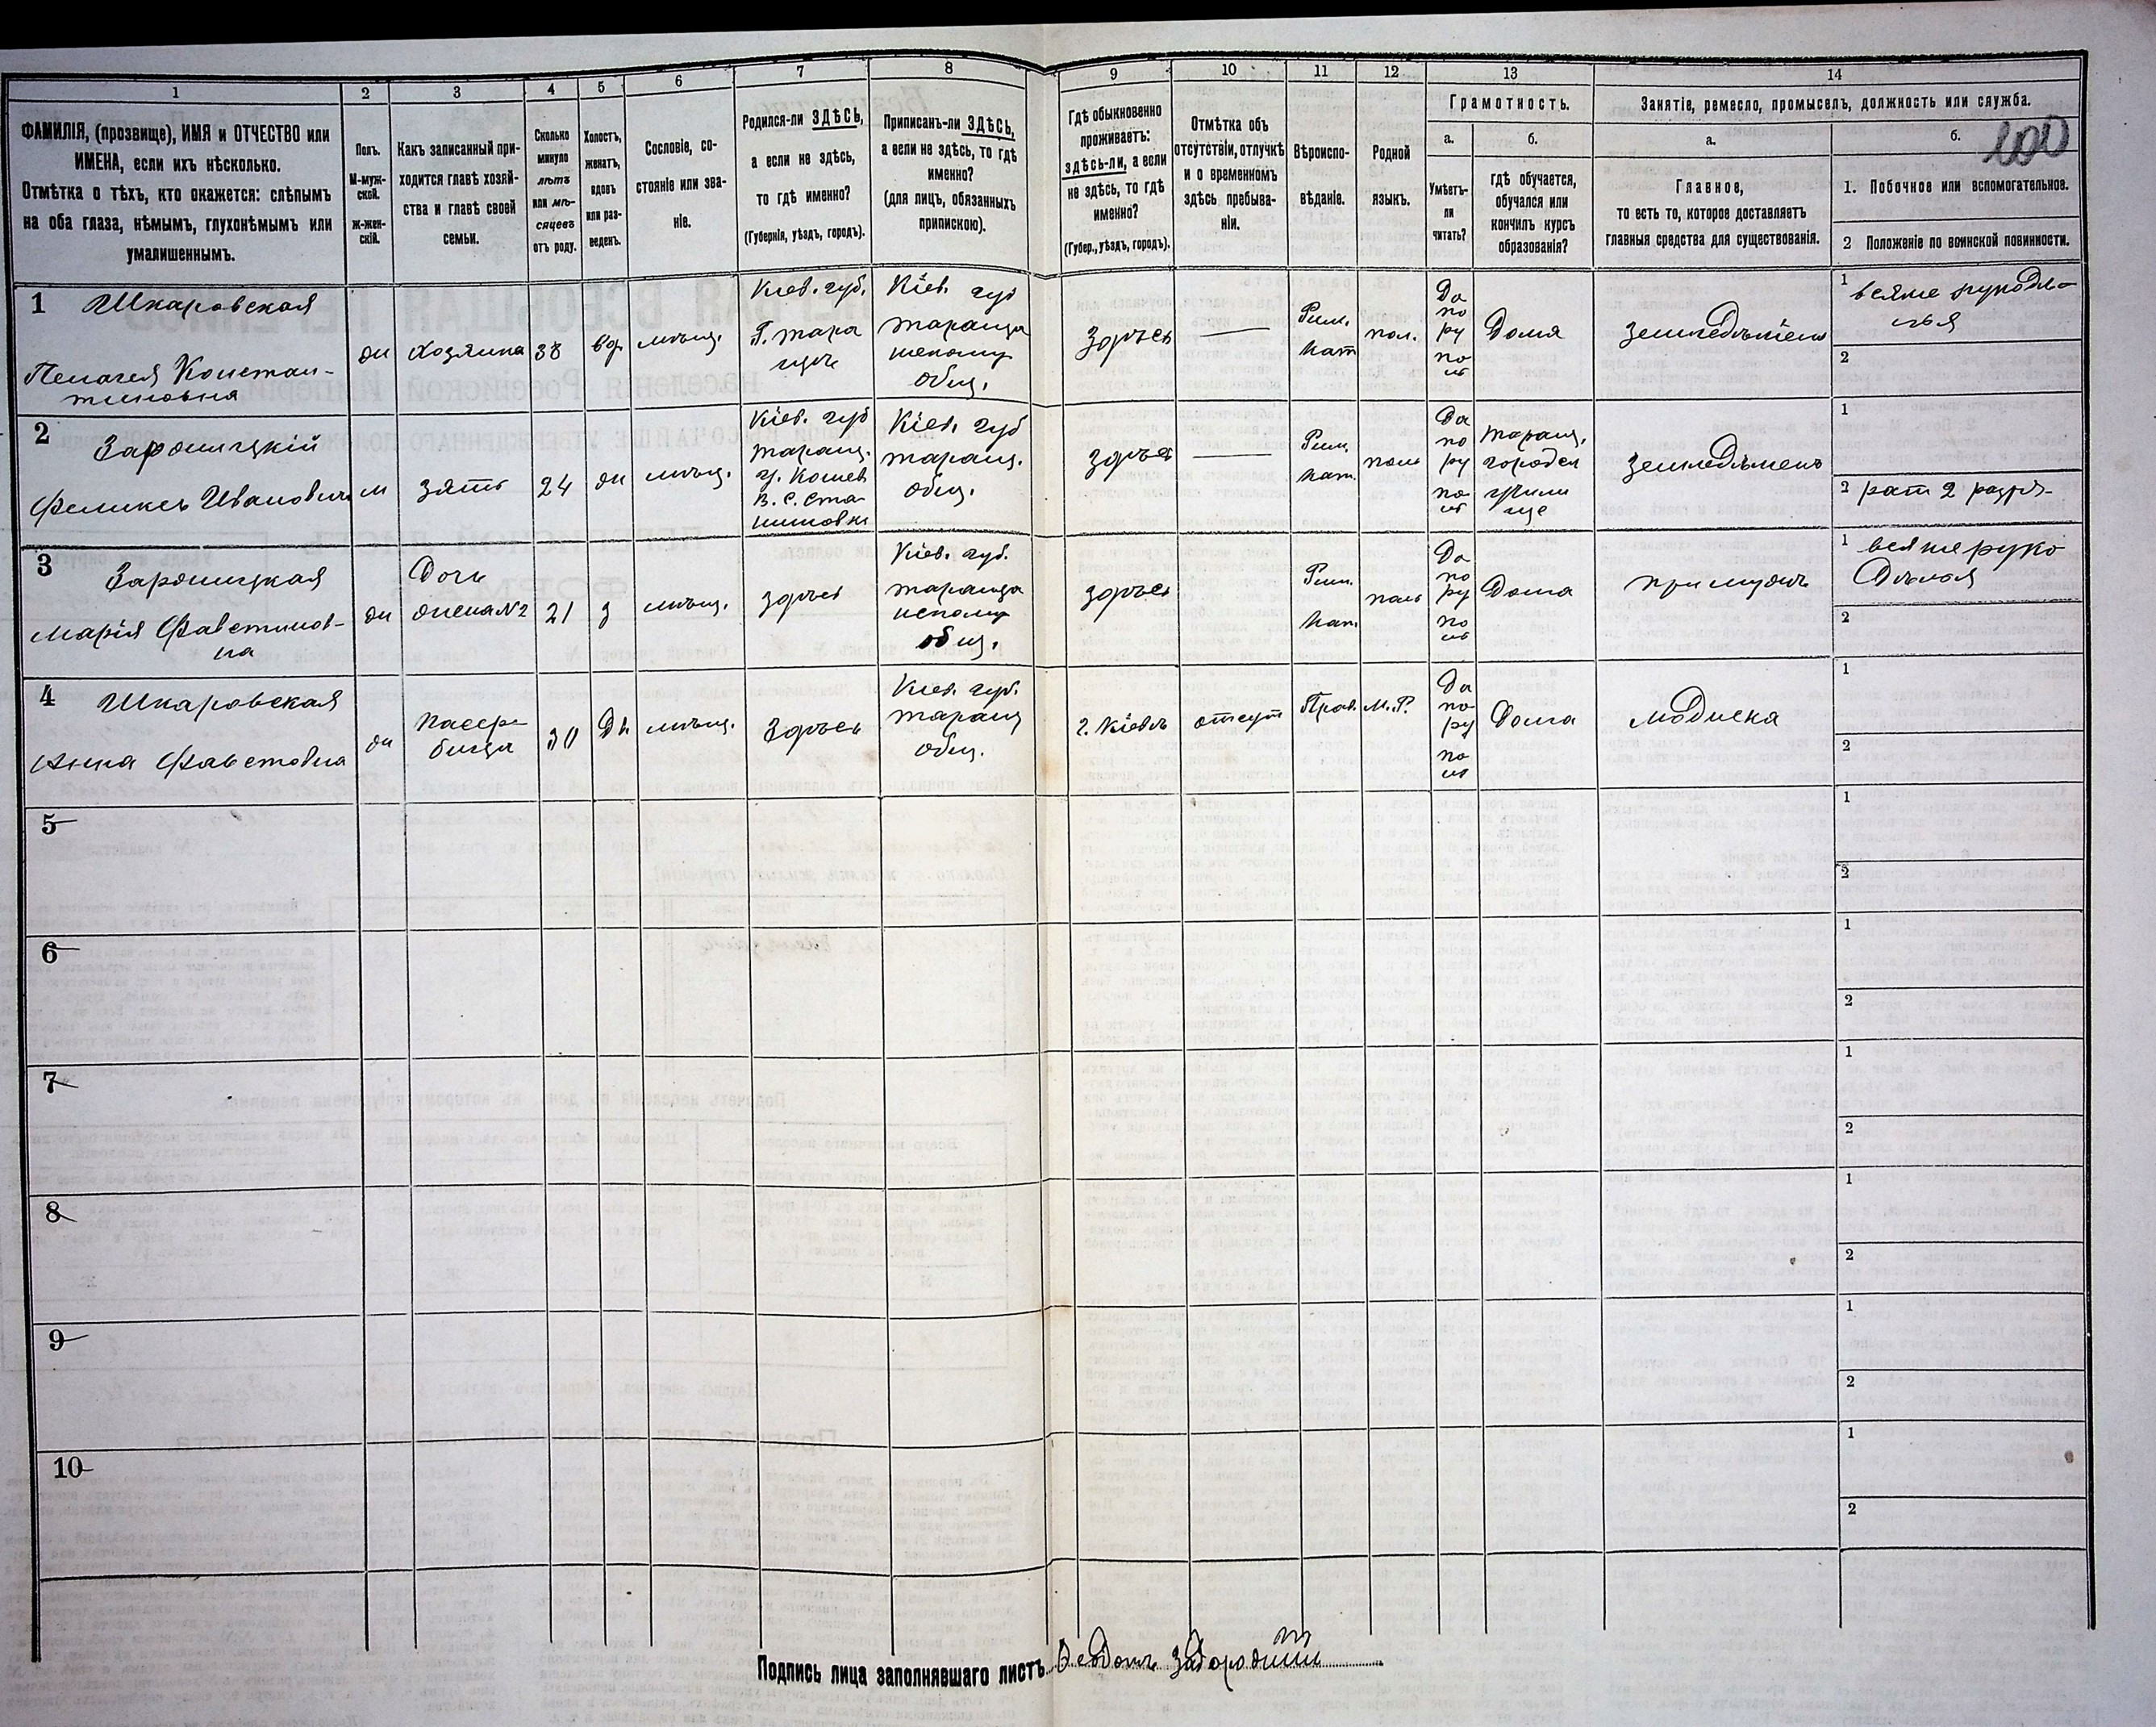 1 2 3 4 5 6 7 8 9 10 11 12 13 14
ФАМИЛІЯ, (прозвище), ИМЯ и ОТЧЕСТВО или
ИМЕНА, если ихъ нѣсколько.
Отмѣтка о тѣхъ, кто окажется: слѣпымъ
на оба глаза, нѣмымъ, глухонѣмымъ или
умалишеннымъ.
Полъ.
М-муж-
ской.
ж-жен-
скій.
Какъ записанный при-
ходится главѣ хозяй-
ства и главѣ своей
семьи.
Сколько
минуло
лѣтъ
или мѣ-
сяцевъ
отъ роду.
Холостъ,
женатъ,
вдовъ
или раз-
веденъ.
Сословіе, со-
стояніе или зва-
ніе.
Родился-ли ЗДѢСЬ,
а если не здѣсь,
то гдѣ именно?
(Губернія, уѣздъ, городъ).
Приписанъ-ли ЗДѢСЬ,
а если не здѣсь, то гдѣ
именно?
(для лицъ, обязанныхъ
припискою).
Гдѣ обыкновенно
проживаетъ:
здѣсь-ли, а если
не здѣсь, то гдѣ
именно?
(Губер., уѣздъ, городъ).
Отмѣтка объ
отсутствіи, отлучкѣ
и о временномъ
здѣсь пребыва-
ніи.
Вѣроиспо-
вѣданіе.
Родной
языкъ.
Грамотность.
а.
Умѣетъ-
ли
читать?
б.
гдѣ обучается,
обучался или
кончилъ курсъ
образованія?
Занятіе, ремесло, промыселъ, должность или служба.
а.
Главное,
то есть то, которое доставляетъ
главныя средства для существованія.
б.
100
1. Побочное или вспомогательное.
2 Положеніе по воинской повинности.
1 Шкаровская
Пелагея Констан-
тиновна
ж
хозяйка
38
вд
мѣщ.
Кіев. губ.
Г. Тара
щѣ
Кіев. губ
тараща
нскому
общ.
Здѣсь
—
Рим.
кат
пол.
Да
по
ру
по
Дома
земледѣліем
1 всякие рукодѣ-
2
2 Зарошицкій
Феликсъ Ивановичъ
м
зять
24
ж
мѣщ.
Кіев. губ
таращ.
у. Кошев
В. С. Ста-
нишовки
Кіев. губ
таращ.
общ.
здѣсь
—
Рим.
кат.
поль
Да
по
ру
по-
таращ.
городск
училище
земледѣлемъ
1
2 рат 2 разря-
3 Зарошицкая
Марія Фавстинов-
на
ж
Дочь
жена №2
21
з
мѣщ.
здѣсь
Кіев. губ.
тараща
нскому
общ.
здѣсь
Рим.
кат.
поль
Да
по
ру
по
Дома
при мужѣ
1 всякие руко
2
4 Шкаровская
Анна Фавстовна
ж
падче-
рица
30
Дѣ
мѣщ.
Здѣсь
Кіев. губ.
таращ
общ.
г. Кіевъ
отсут
Прав.
М. Р.
Да
по
ру
по
Дома
модиска
1
2
5
1
2
6
1
2
7
1
2
8
1
2
9
1
2
10
1
2
Подпись лица заполнявшаго листъ